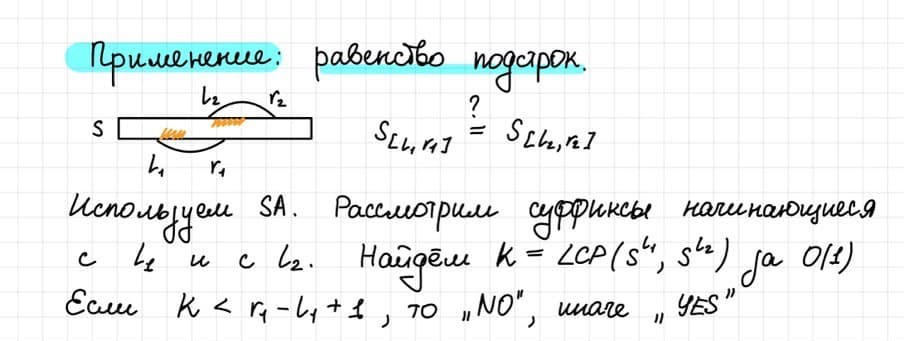 Применение: равенство подстрок.
L₂ r₂
S
L₁ r₁
S[L₁, r₁] ?= S[L₂, r₂]
Используем SA. Рассмотрим суффиксы начинающиеся
с L₁ и с L₂. Найдём k = LCP(S^L₁, S^L₂) за O(1)
Если k < r₁ - L₁ + 1, то „NO", иначе „YES"